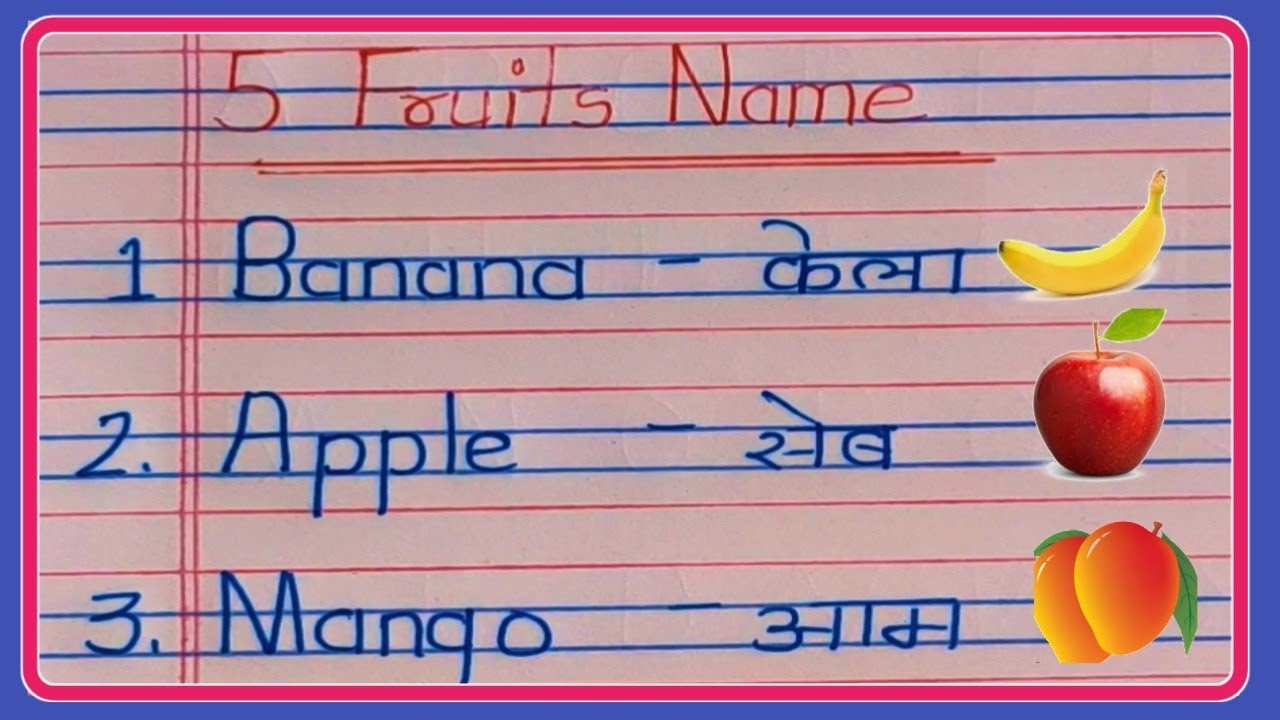 5 Fruits Name
1 Banana - केला
2. Apple - सेब
3. Mango - आम